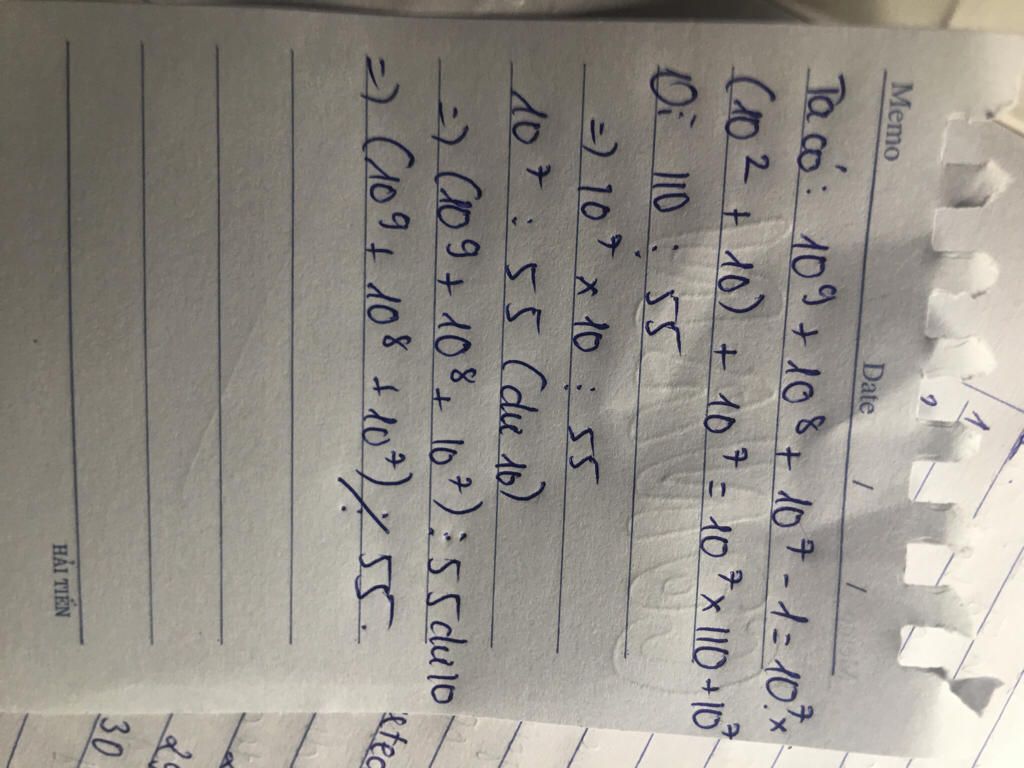 Memo
Date / /
Ta có: 10⁹ + 10⁸ + 10⁷ - 1 = 10⁷ x
(10² + 10) + 10⁷ = 10⁷ x 110 + 10⁷
Vì 110 ⋮ 55
=) 10⁷ x 10 ⋮ 55
10⁷ : 55 (dư 10)
=) (10⁹ + 10⁸ + 10⁷) : 55 dư 10
=) (10⁹ + 10⁸ + 10⁷) ⋮̸ 55.
HẢI TIẾN
1
30